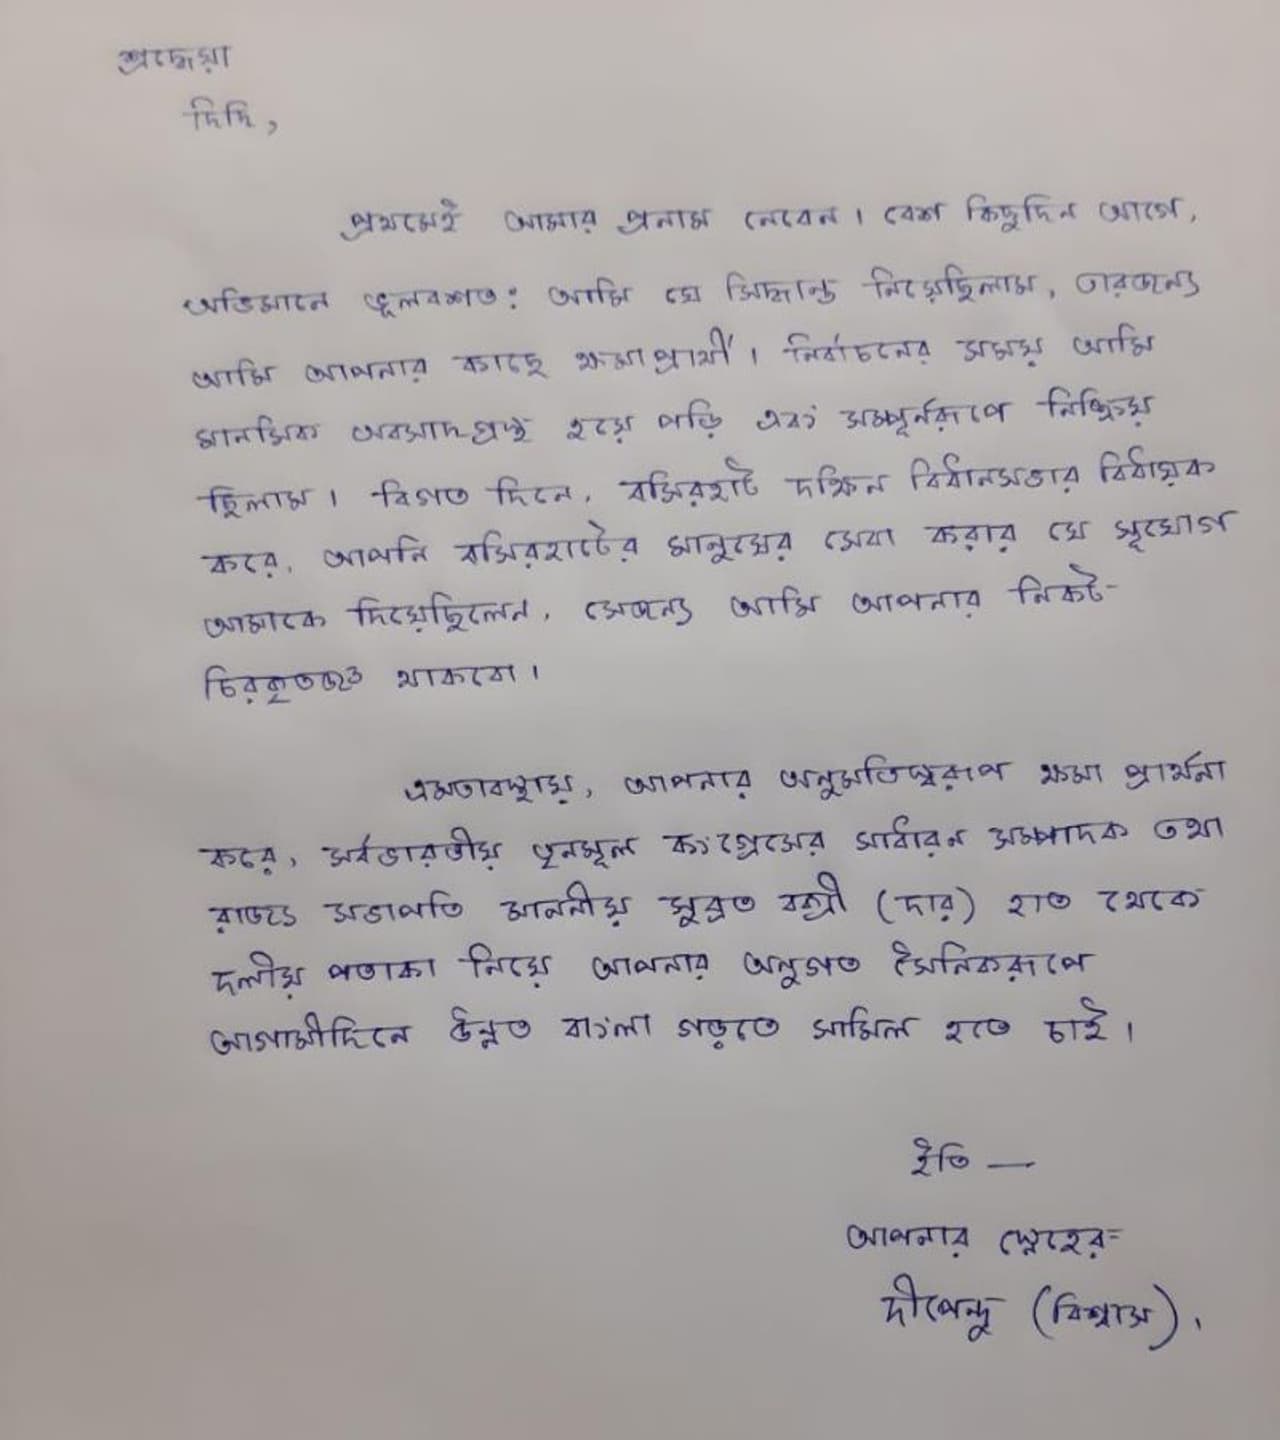 শ্রদ্ধেয়া
দিদি,
প্রথমেই আমার প্রনাম নেবেন। বেশ কিছুদিন আগে,
অভিমানে ভূলবশতঃ আমি যে সিদ্ধান্ত নিয়েছিলাম, তারজন্য
আমি আপনার কাছে ক্ষমাপ্রার্থী। নির্বাচনের সময় আমি
মানসিক অবসাদগ্রস্থ হয়ে পড়ি এবং সম্পূর্নরূপে নিষ্ক্রিয়
ছিলাম। বিগত দিনে, বসিরহাট দক্ষিন বিধানসভার বিধায়ক
করে, আপনি বসিরহাটের মানুষের সেবা করার যে সূযোগ
আমাকে দিয়েছিলেন, সেজন্য আমি আপনার নিকট-
চিরকৃতজ্ঞ থাকবো।
এমতাবস্থায়, আপনার অনুমতিস্বরূপ ক্ষমা প্রার্থনা
করে, সর্বভারতীয় তৃনমূল কংগ্রেসের সাধারন সম্পাদক তথা
রাজ্য সভাপতি মাননীয় সুব্রত বক্সী (দার) হাত থেকে
দলীয় পতাকা নিয়ে আপনার অনুগত সৈনিকরূপে
আগামীদিনে উন্নত বাংলা গড়তে সামিল হতে চাই।
ইতি —
আপনার স্নেহের-
দীপেন্দু (বিশ্বাস)।